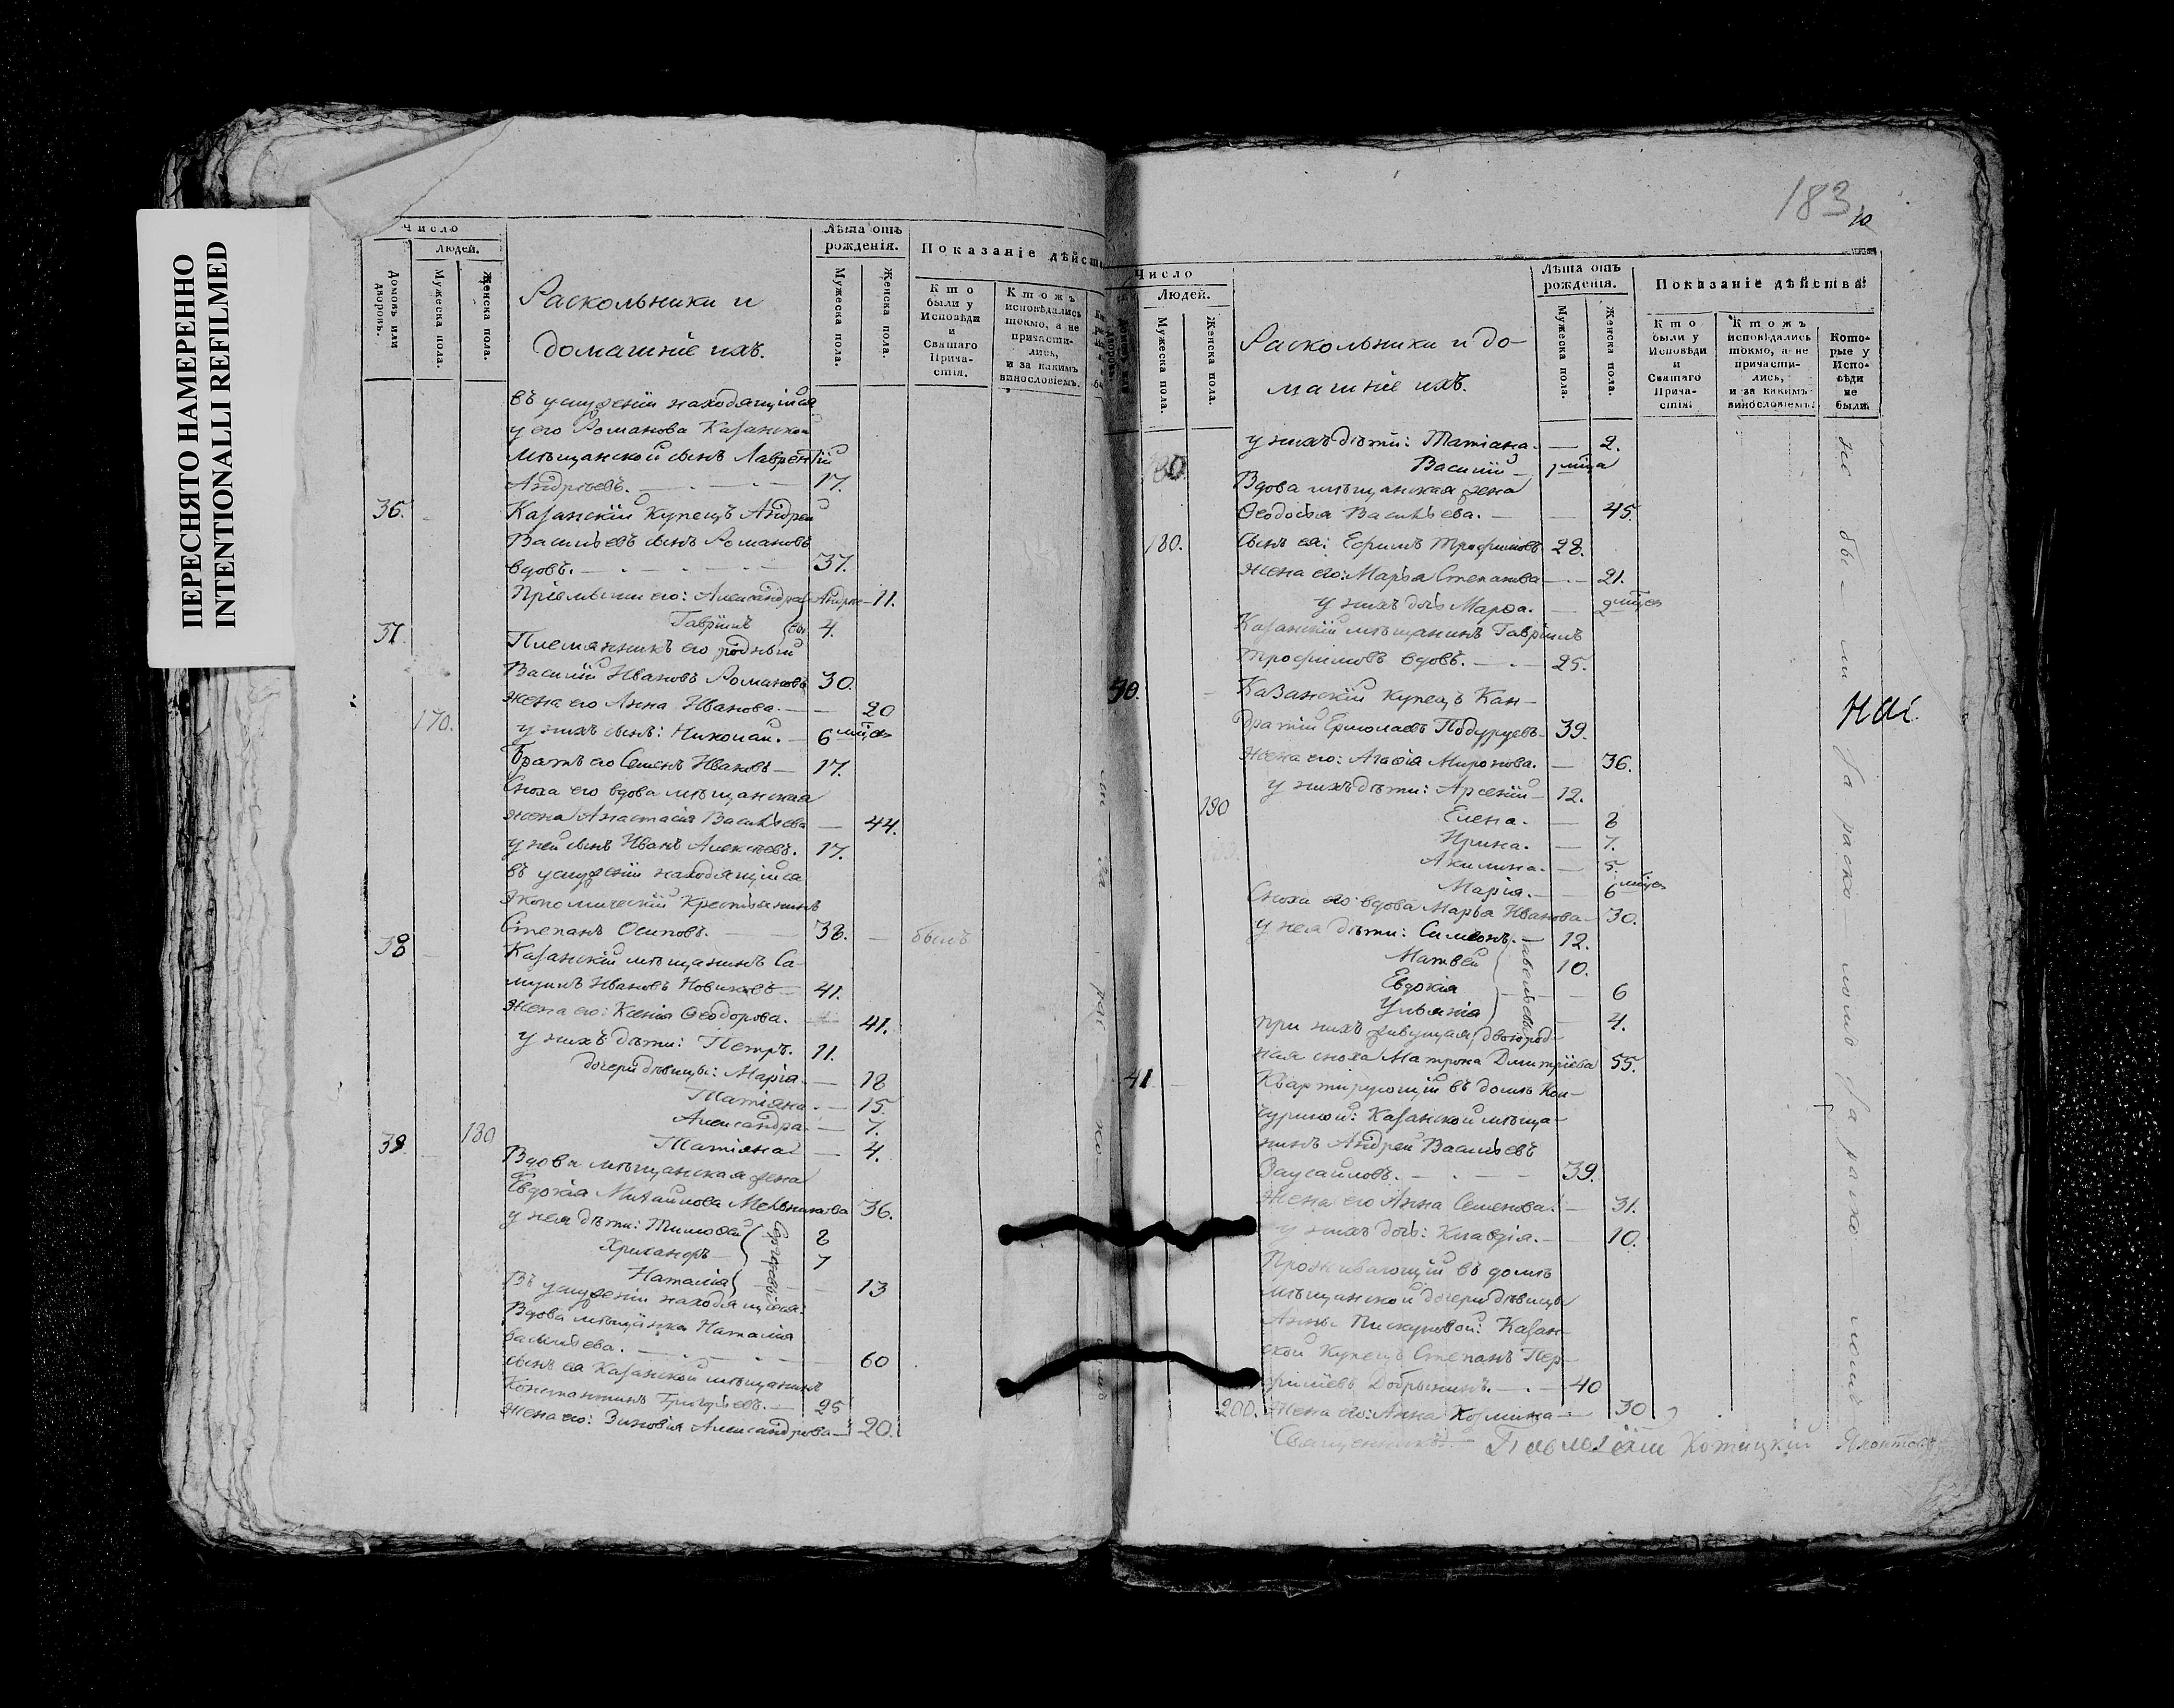 ПЕРЕСНЯТО НАМЕРЕННО
INTENTIONALLI REFILMED
Число
Людей.
Домовъ или дворовъ.
Мужеска пола.
Женска пола.
Раскольники и
домашніе ихъ.
Лѣта отъ рожденія.
Мужеска пола.
Женска пола.
Показаніе дѣйст
Кто были у Исповѣди и Святаго Причастія.
Ктожъ исповѣдались токмо, а не причастились, и за какимъ винословіемъ.
въ услуженіи находящійся
у его Романова Казанской
мѣщанской сынъ Лаврентій
Андрѣевъ. 17.
36. Казанскій купецъ Андрей
Васильевъ сынъ Романовъ
вдовъ. 37.
Пріемыши его: Александра 11.
Гавріилъ 4.
37. Племянникъ его родный
Василій Ивановъ Романовъ 30.
жена его Анна Иванова. 20
170. у нихъ сынъ: Николай. 6 мцев
Братъ его Семенъ Ивановъ 17.
Сноха его вдова мѣщанская
жена Анастасія Васильева 44.
у ней сынъ Иванъ Алексѣевъ. 17.
въ услуженіи находящійся
экономическій крестьянинъ
Степанъ Осиповъ. 38. былъ
38 Казанскій мѣщанинъ Са-
муилъ Ивановъ Новиковъ 41.
жена его: Ксенія Ѳеодорова. 41.
у нихъ дѣти: Петръ. 11.
дочери дѣвицы: Марія. 18
Татіяна. 15.
Александра. 7.
39. 180 Татіяна 4.
Вдова мѣщанская жена
Евдокія Михайлова Мельникова 36.
у нея дѣти: Тимоѳей 8
7
Наталія 13
Въ услуженіи находящіяся:
Вдова мѣщанка Наталія
Васильева. 60
сынъ ея Казанской мѣщанинъ
Константинъ Григорьевъ. 25
жена его: Зиновія Александрова 20.
183
10
Число
Людей.
Мужеска пола.
Женска пола.
Раскольники и до-
машніе ихъ.
Лѣта отъ рожденія.
Мужеска пола.
Женска пола.
Показаніе дѣйства.
Кто были у Исповѣди и Святаго Причастія.
Ктожъ исповѣдались токмо, а не причастились, и за какимъ винословіемъ.
Которые у Исповѣди не были.
у нихъ дѣти: Татіана. 2.
Василій 1 мца
Вдова мѣщанская жена
Ѳеодосья Васильева. 45.
180. сынъ ея: Ефимъ Трофимовъ 28.
жена его: Марья Степанова 21.
у нихъ дочь Марѳа. 2 мцев
Казанскій мѣщанинъ Гавріилъ
Трофимовъ вдовъ. 25.
Казанскій купецъ Кан-
дратій Ермолаевъ Подуруевъ 39.
жена его: Агаѳія Миронова. 36.
у нихъ дѣти: Арсеній 12.
190 Елена. 8
Ирина. 7.
Акилина. 5.
Марія. 6 мцев
Сноха его вдова Марья Иванова 30.
у нея дѣти: Симеонъ. 12.
Матвей 10.
Евдокія 6
Ульянія 4.
при нихъ живущая двоюрод-
ная сноха Матрона Дмитріева 55.
41 Квартирующій въ домѣ Кон-
чуриной: Казанской мѣща-
нинъ Андрей Васильевъ
Заусайловъ. 39.
жена его Анна Семенова. 31.
у нихъ дочь: Клавдія. 10.
Проживающій въ домѣ
мѣщанской дочери дѣвицы
Анны Пискуновой: Казан-
ской купецъ Степанъ
Добрынинъ. 40
200. жена его: Анна Козмина 30
Священникъ
не бы – ли за раско – ломъ